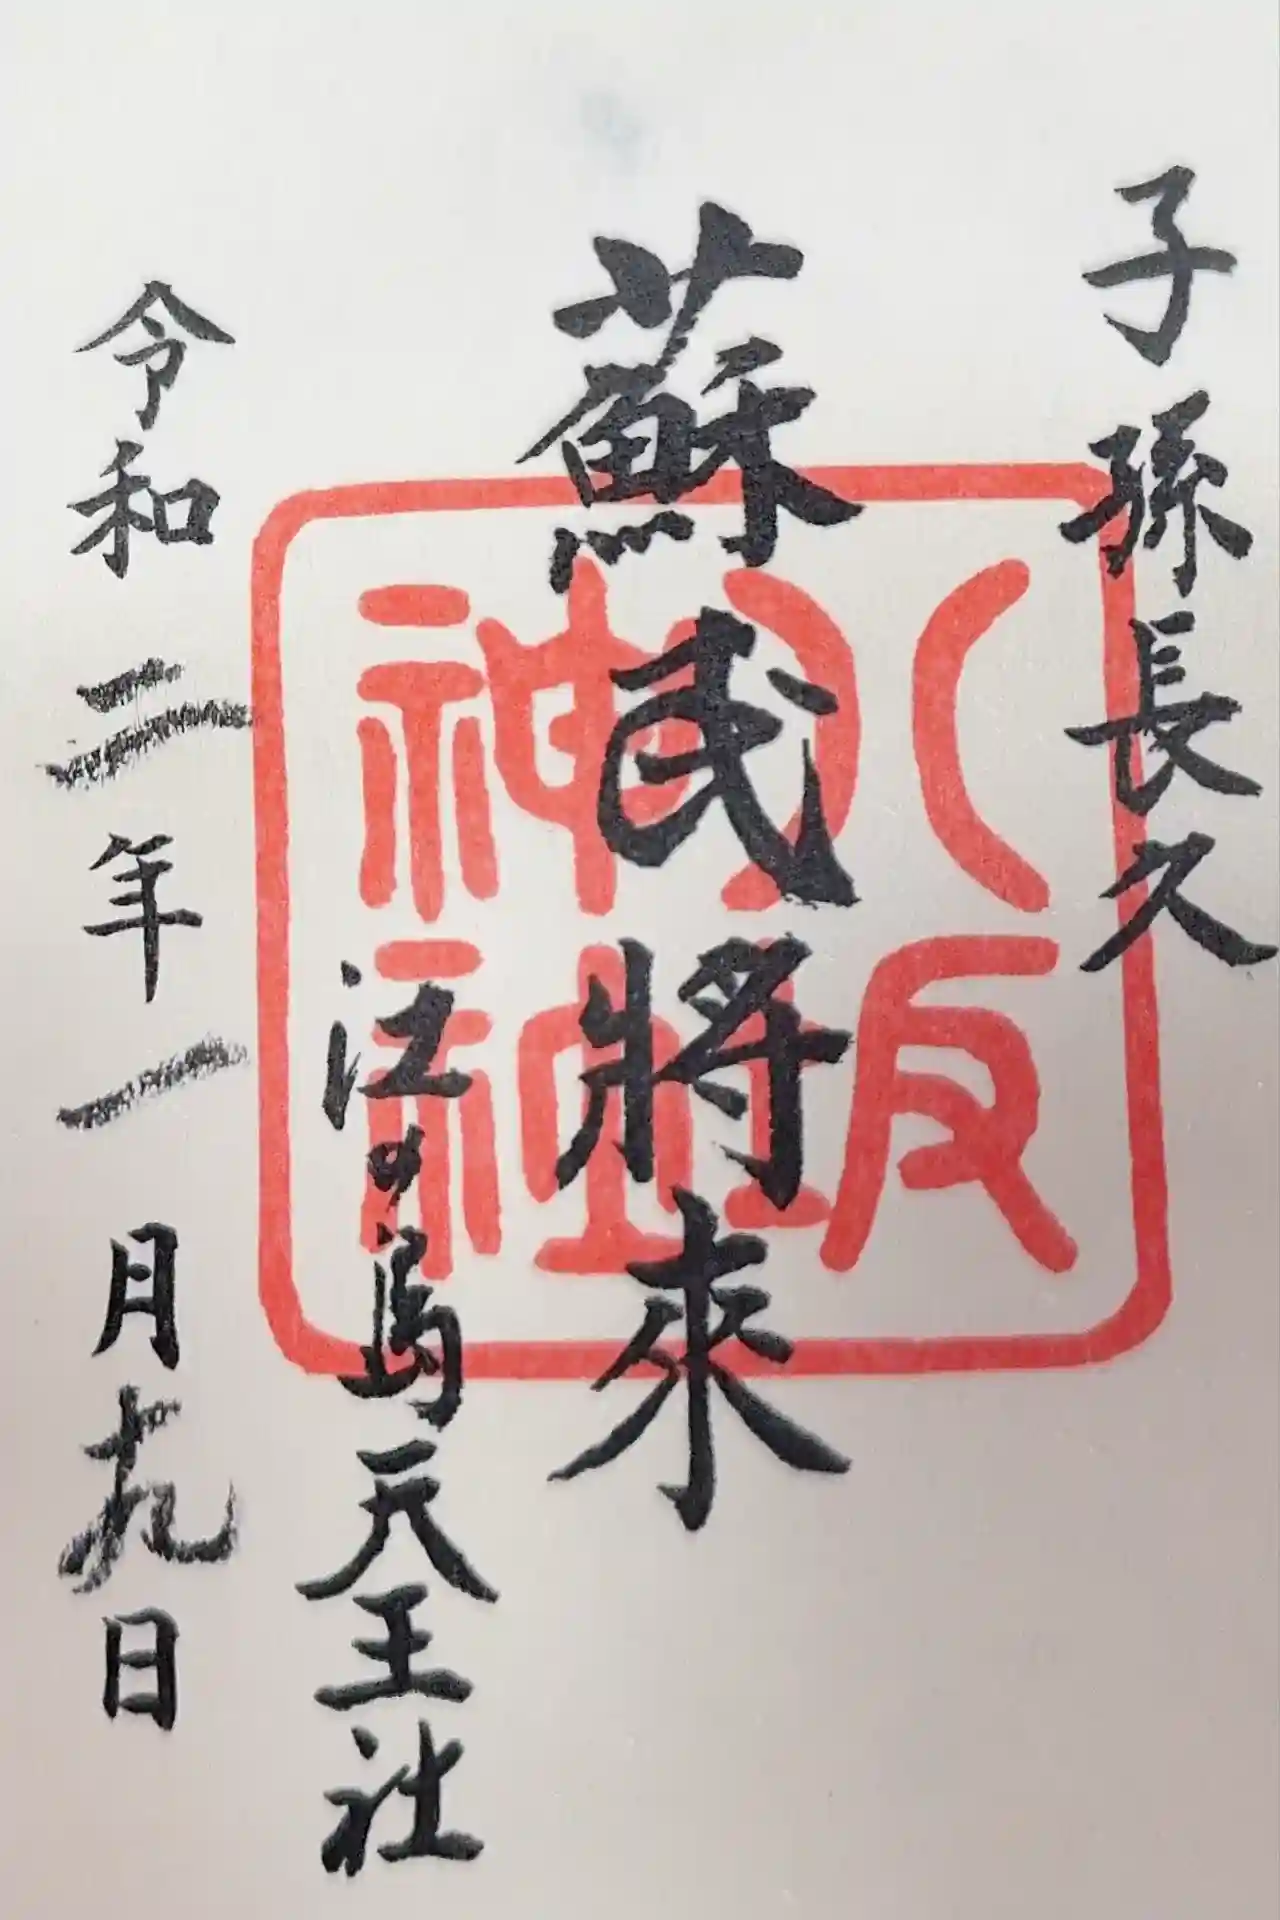 子孫長久
蘇民將來
江の島天王社
令和二年一月十九日
八坂神社